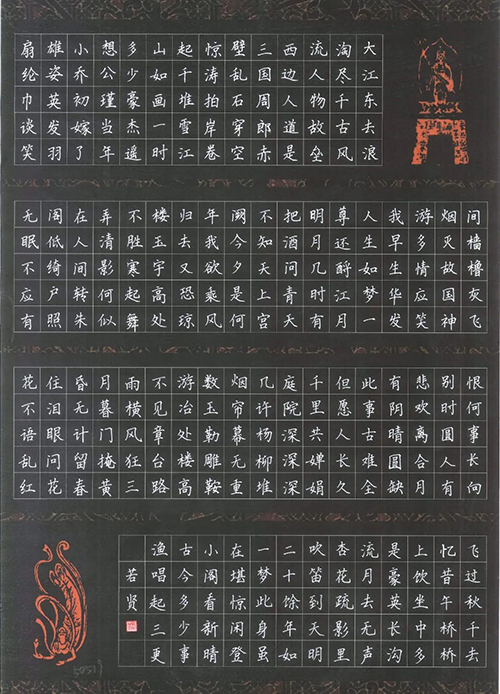 大江东去浪
淘尽千古风
流人物故垒
西边人道是
三国周郎赤
壁乱石穿空
惊涛拍岸卷
起千堆雪江
山如画一时
多少豪杰遥
想公瑾当年
小乔初嫁了
雄姿英发羽
扇纶巾谈笑
间樯橹灰飞
烟灭故国神
游多情应笑
我早生华发
人生如梦一
尊还酹江月
明月几时有
把酒问青天
不知天上宫
阙今夕是何
年我欲乘风
归去又恐琼
楼玉宇高处
不胜寒起舞
弄清影何似
在人间转朱
阁低绮户照
无眠不应有
恨何事长向
别时圆人有
悲欢离合月
有阴晴圆缺
此事古难全
但愿人长久
千里共婵娟
庭院深深深
几许杨柳堆
烟帘幕无重
数玉勒雕鞍
游冶处楼高
不见章台路
雨横风狂三
月暮门掩黄
昏无计留春
住泪眼问花
花不语乱红
飞过秋千去
忆昔午桥桥
上饮坐中多
是豪英长沟
流月去无声
杏花疏影里
吹笛到天明
二十馀年如
一梦此身虽
在堪惊闲登
小阁看新晴
古今多少事
渔唱起三更
若贤